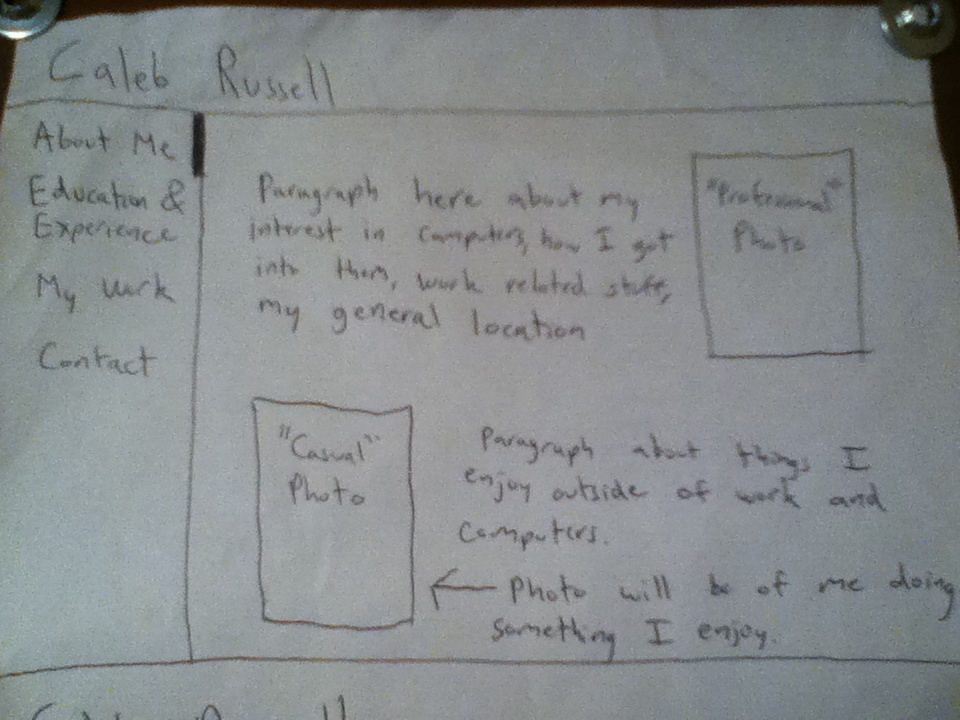 Caleb Russell
About Me
Education &
Experience
My Work
Contact
Paragraph here about my
interest in computers, how I got
into them, work related stuff,
my general location
"Professional"
Photo
"Casual"
Photo
Paragraph about things I
enjoy outside of work and
computers.
← Photo will be of me doing
something I enjoy.
Caleb Russell